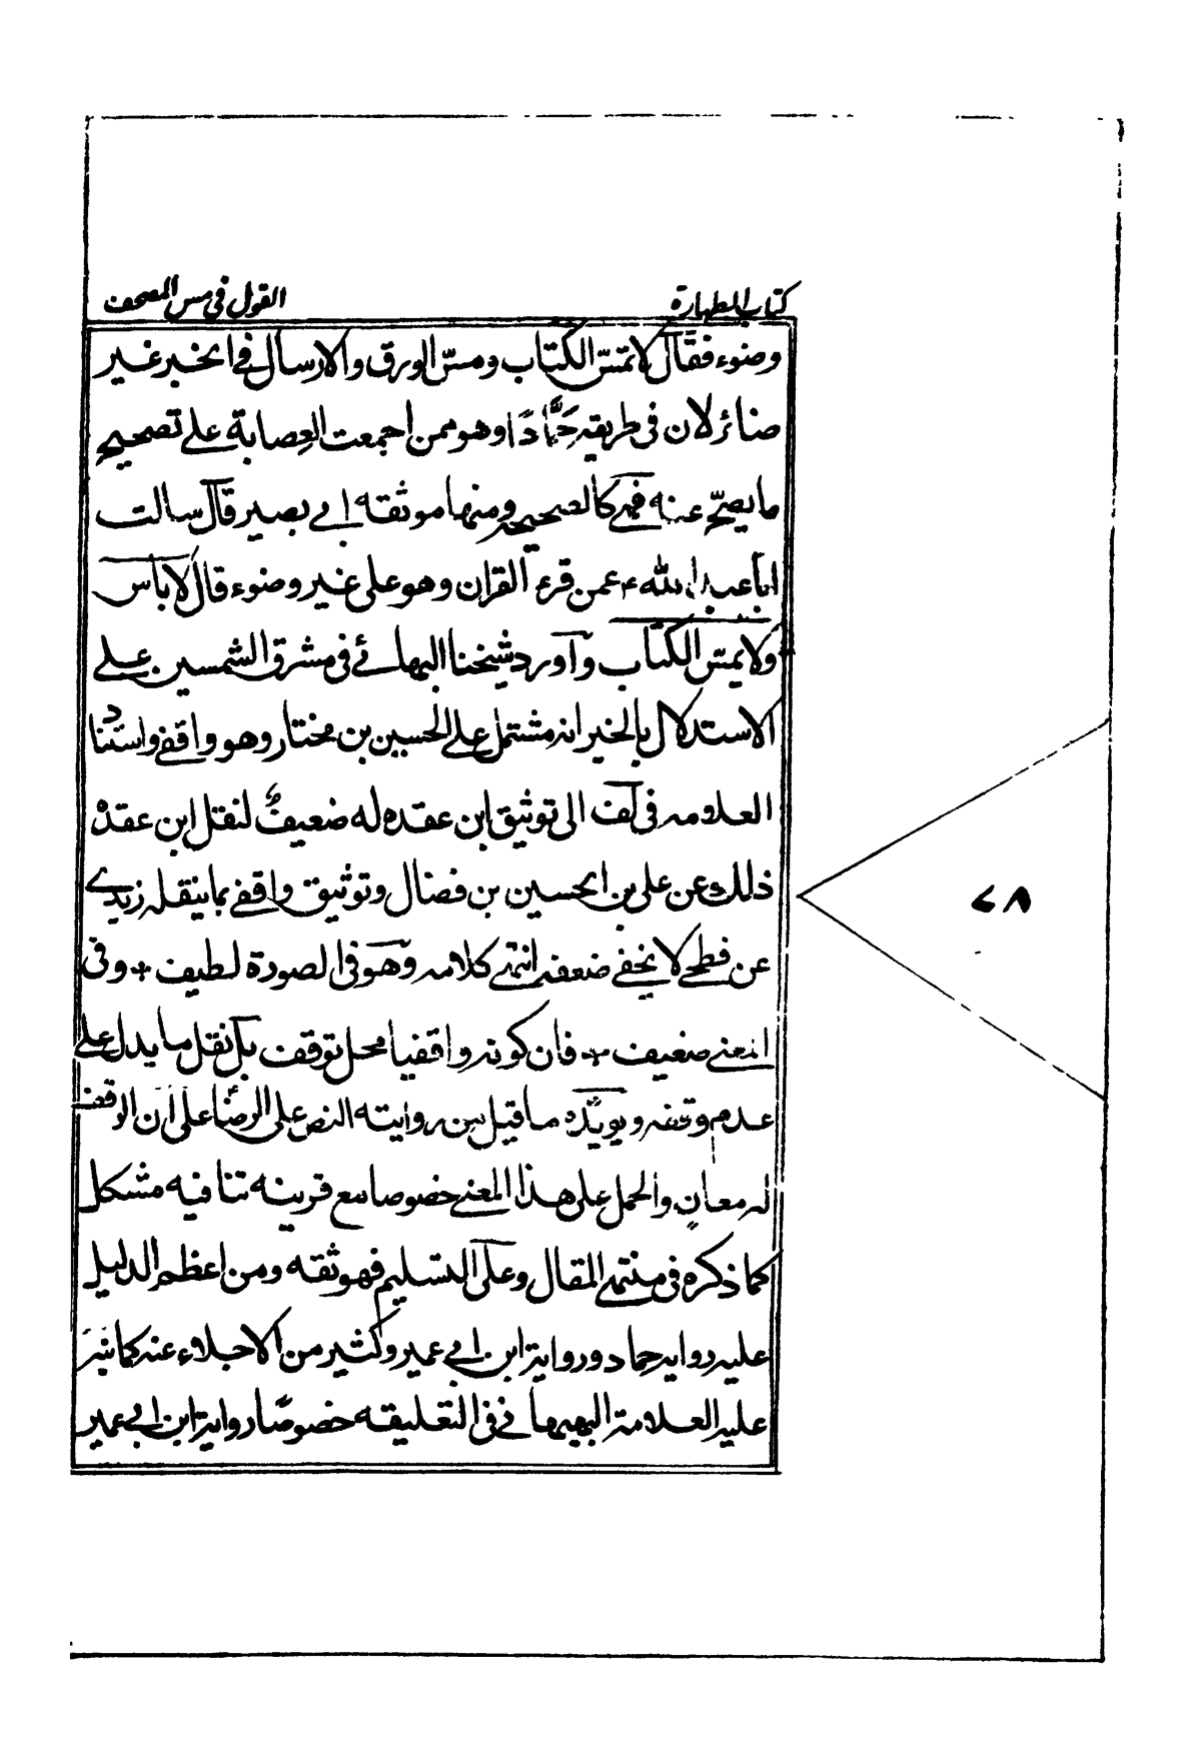 كتاب الطهارة
القول في مس المصحف
وضوء فقال لا تمس الكتاب ومسّ الورق والارسال في الخبر غير
ضائر لان في طريقه حَمَّادًا وهو ممن اجمعت العِصابة على تصحيح
ما يصحّ عنه فهي كالصحيحة ومنها موثقه ابي بصير قال سالت
ابا عبد الله ع عمن قرء القران وهو على غير وضوء قال لا باس
ولا يمسّ الكتاب وآورد شيخنا البهائي في مشرق الشمسين على
الاستدلال بالخبر انه مشتمل على الحسين بن مختار وهو واقفي واستناد
العلامه في لف الى توثيق ابن عقده له ضعيفٌ لنقل ابن عقده
ذلك عن على بن الحسين بن فضال وتوثيق واقفي بما ينقله زيدي
عن فطحي لا يخفى ضعفه انتهى كلامه وهو في الصورة لطيف + وفي
المعنى ضعيف + فان كونه واقفيا محل توقف بل نقل ما يدل على
عدم وقفه ويويّده ما قيل من روايته النص على الرضا على ان الوقف
له معانٍ والحمل على هذا المعنى خصوصا مع قرينه تنافيه مشكل
كما ذكره في منتهى المقال وعلى التسليم فهو ثقه ومن اعظم الدليل
عليه روايه حماد ورواية ابن ابي عمير وكثير من الاجلاء عنه كما نبّه
عليه العلامة البهبهاني في التعليقه خصوصًا رواية ابن ابي عمير
٧٨